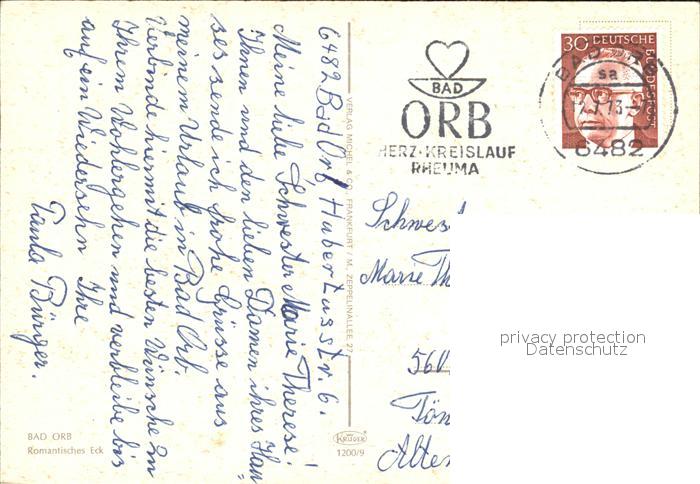 6482 Bad Orb Hubertusstr. 6.
Meine liebe Schwester Marie Therese!
Ihnen und den lieben Damen ihres Hau-
ses sende ich frohe Grüsse aus
meinem Urlaub in Bad Orb.
Verbinde hiermit die besten Wünsche zu
Ihrem Wohlergehen und verbleibe bis
auf ein Wiedersehn Ihre
Paula Bürger.
BAD ORB
Romantisches Eck
VERLAG MICHEL & CO., FRANKFURT / M., ZEPPELINALLEE 27
KRÜGER
1200/9
BAD
ORB
HERZ-KREISLAUF
RHEUMA
30 DEUTSCHE
BUNDESPOST
BAD ORB
sa
73
6482
Schwes
Marie Th
560
Tön
Alte
privacy protection
Datenschutz